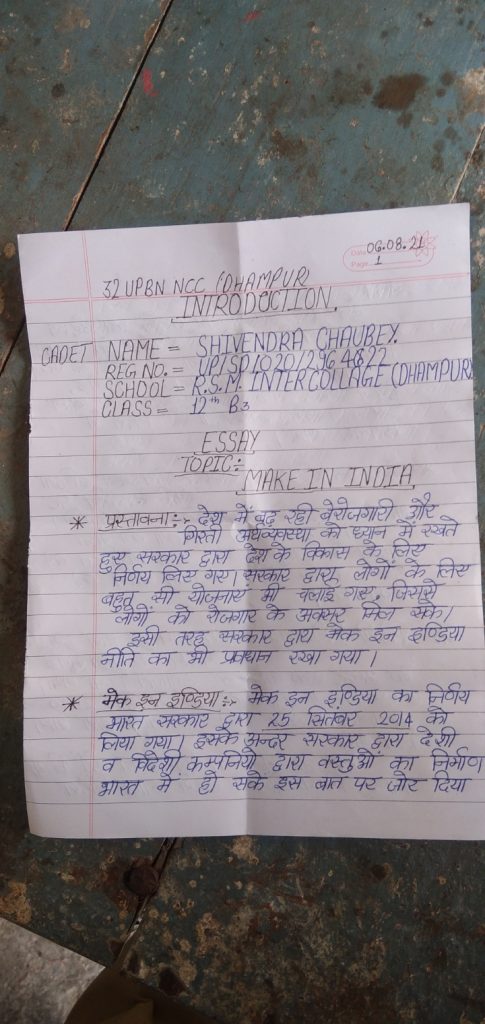 Date 06.08.21
Page 1
32 UPBN NCC (DHAMPUR)
INTRODUCTION.
CADET NAME = SHIVENDRA CHAUBEY.
REG NO. = UP/SD/020/2964822
SCHOOL = R.S.M. INTER COLLAGE (DHAMPUR)
CLASS = 12th B3
ESSAY
TOPIC:-
MAKE IN INDIA
* प्रस्तावना :-> देश में बढ़ रही बेरोजगारी और
गिरती अर्थव्यवस्था को ध्यान में रखते
हुए सरकार द्वारा देश के विकास के लिए
निर्णय लिए गए। सरकार द्वारा लोगों के लिए
बहुत सी योजनाएं भी चलाई गई, जिससे
लोगों को रोजगार के अवसर मिल सके।
इसी तरह सरकार द्वारा मेक इन इण्डिया
नीति का भी प्रावधान रखा गया।
* मेक इन इण्डिया :-> मेक इन इण्डिया का निर्णय
भारत सरकार द्वारा 25 सितंबर 2014 को
लिया गया। इसके अन्दर सरकार द्वारा देशी
व विदेशी कम्पनियों द्वारा वस्तुओं का निर्माण
भारत में हो सके इस बात पर जोर दिया